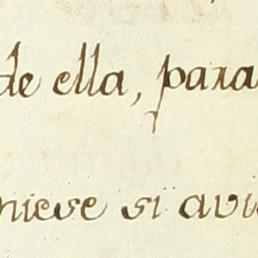 de ella, para
niese si avi